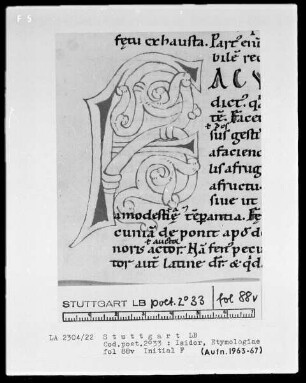 F 5
fętu exhausta. Parcꝰ enī
bile rec
ACV
dictꝰ. q
tē. Facen
sus gest
a facien
lis a frug
a fructu
siue ut
a modestię tēpantia. Fę
cuniā deponit ap
noris actor. Nā
tor autē latine dr̄
STUTTGART LB poet. 2° 33 fol 88v
LA 2304/22 Stuttgart LB
Cod.poet.2°33 : Isidor, Etymologiae
fol 88v Initial F (Aufn.1965-67)